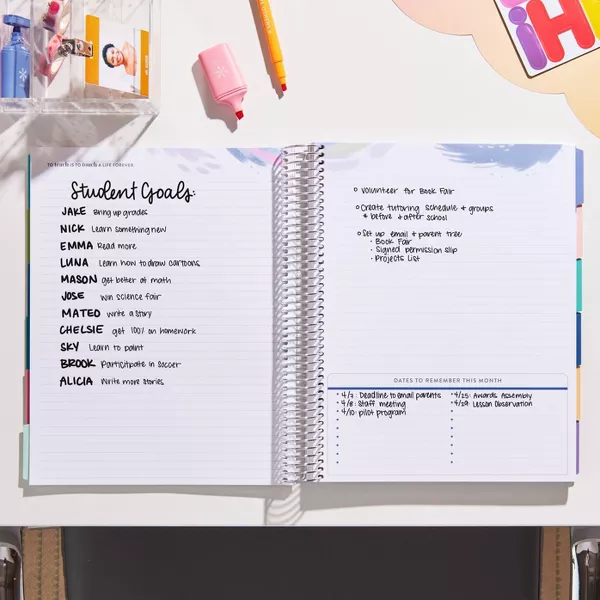 iH
TO TEACH IS TO TOUCH A LIFE FOREVER.
Student Goals:
JAKE Bring up grades
NICK Learn something new
EMMA Read more
LUNA Learn how to draw cartoons
MASON get better at math
JOSE Win science fair
MATEO Write a story
CHELSIE get 100% on homework
SKY Learn to paint
BROOK Participate in Soccer
ALICIA Write more stories
Volunteer for Book Fair
Create tutoring schedule & groups
& before & after school
Set up email & parent tree
• Book Fair
• Signed permission slip
• Projects List
DATES TO REMEMBER THIS MONTH
• 4/2: Deadline to email parents
• 4/8: Staff meeting
• 4/10: pilot program
• 4/25: Awards Assembly
• 4/29: Lesson Observation